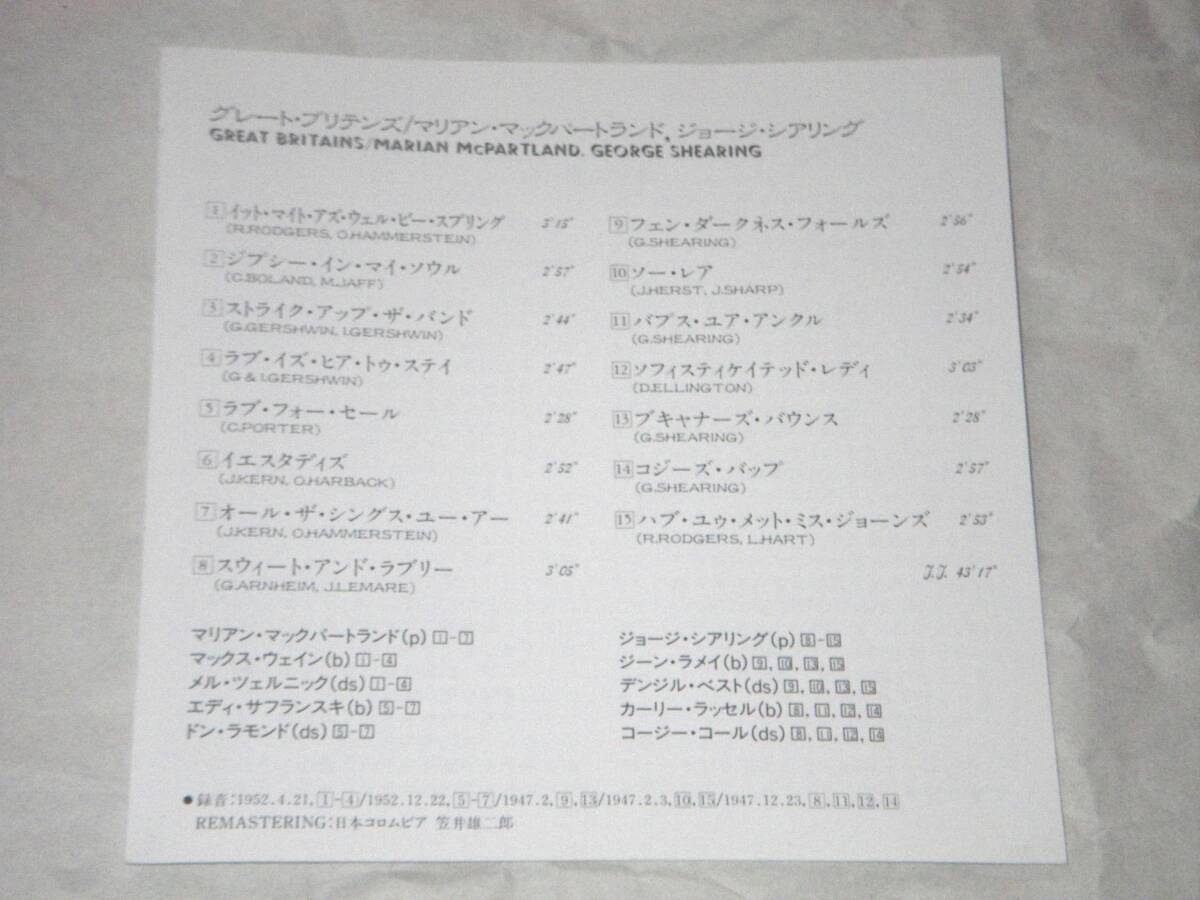 グレート・ブリテンズ/マリアン・マックパートランド, ジョージ・シアリング
GREAT BRITAINS/MARIAN McPARTLAND. GEORGE SHEARING
1 イット・マイト・アズ・ウェル・ビー・スプリング 3'15"
(R.RODGERS, O.HAMMERSTEIN)
2 ジプシー・イン・マイ・ソウル 2'57"
(C.BOLAND, M.JAFF)
3 ストライク・アップ・ザ・バンド 2'44"
(G.GERSHWIN, I.GERSHWIN)
4 ラブ・イズ・ヒア・トゥ・ステイ 2'47"
(G & I.GERSHWIN)
5 ラブ・フォー・セール 2'28"
(C.PORTER)
6 イエスタデイズ 2'52"
(J.KERN, O.HARBACK)
7 オール・ザ・シングス・ユー・アー 2'41"
(J.KERN, O.HAMMERSTEIN)
8 スウィート・アンド・ラブリー 3'05"
(G.ARNHEIM, J.LEMARE)
9 フェン・ダークネス・フォールズ 2'56"
(G.SHEARING)
10 ソー・レア 2'54"
(J.HERST, J.SHARP)
11 バプス・ユア・アンクル 2'34"
(G.SHEARING)
12 ソフィスティケイテッド・レディ 3'03"
(D.ELLINGTON)
13 ブキャナーズ・バウンス 2'28"
(G.SHEARING)
14 コジーズ・バップ 2'57"
(G.SHEARING)
15 ハブ・ユゥ・メット・ミス・ジョーンズ 2'53"
(R.RODGERS, L.HART)
T.T. 43'17"
マリアン・マックパートランド(p) 1-7
マックス・ウェイン(b) 1-4
メル・ツェルニック(ds) 1-4
エディ・サフランスキ(b) 5-7
ドン・ラモンド(ds) 5-7
ジョージ・シアリング(p) 8-15
ジーン・ラメイ(b) 9, 10, 13, 15
デンジル・ベスト(ds) 9, 10, 13, 15
カーリー・ラッセル(b) 8, 11, 12, 14
コージー・コール(ds) 8, 11, 12, 14
●録音:1952.4.21, 1-4/1952.12.22, 5-7/1947.2, 9, 13/1947.2.3, 10, 15/1947.12.23, 8, 11, 12, 14
REMASTERING:日本コロムビア 笠井雄二郎